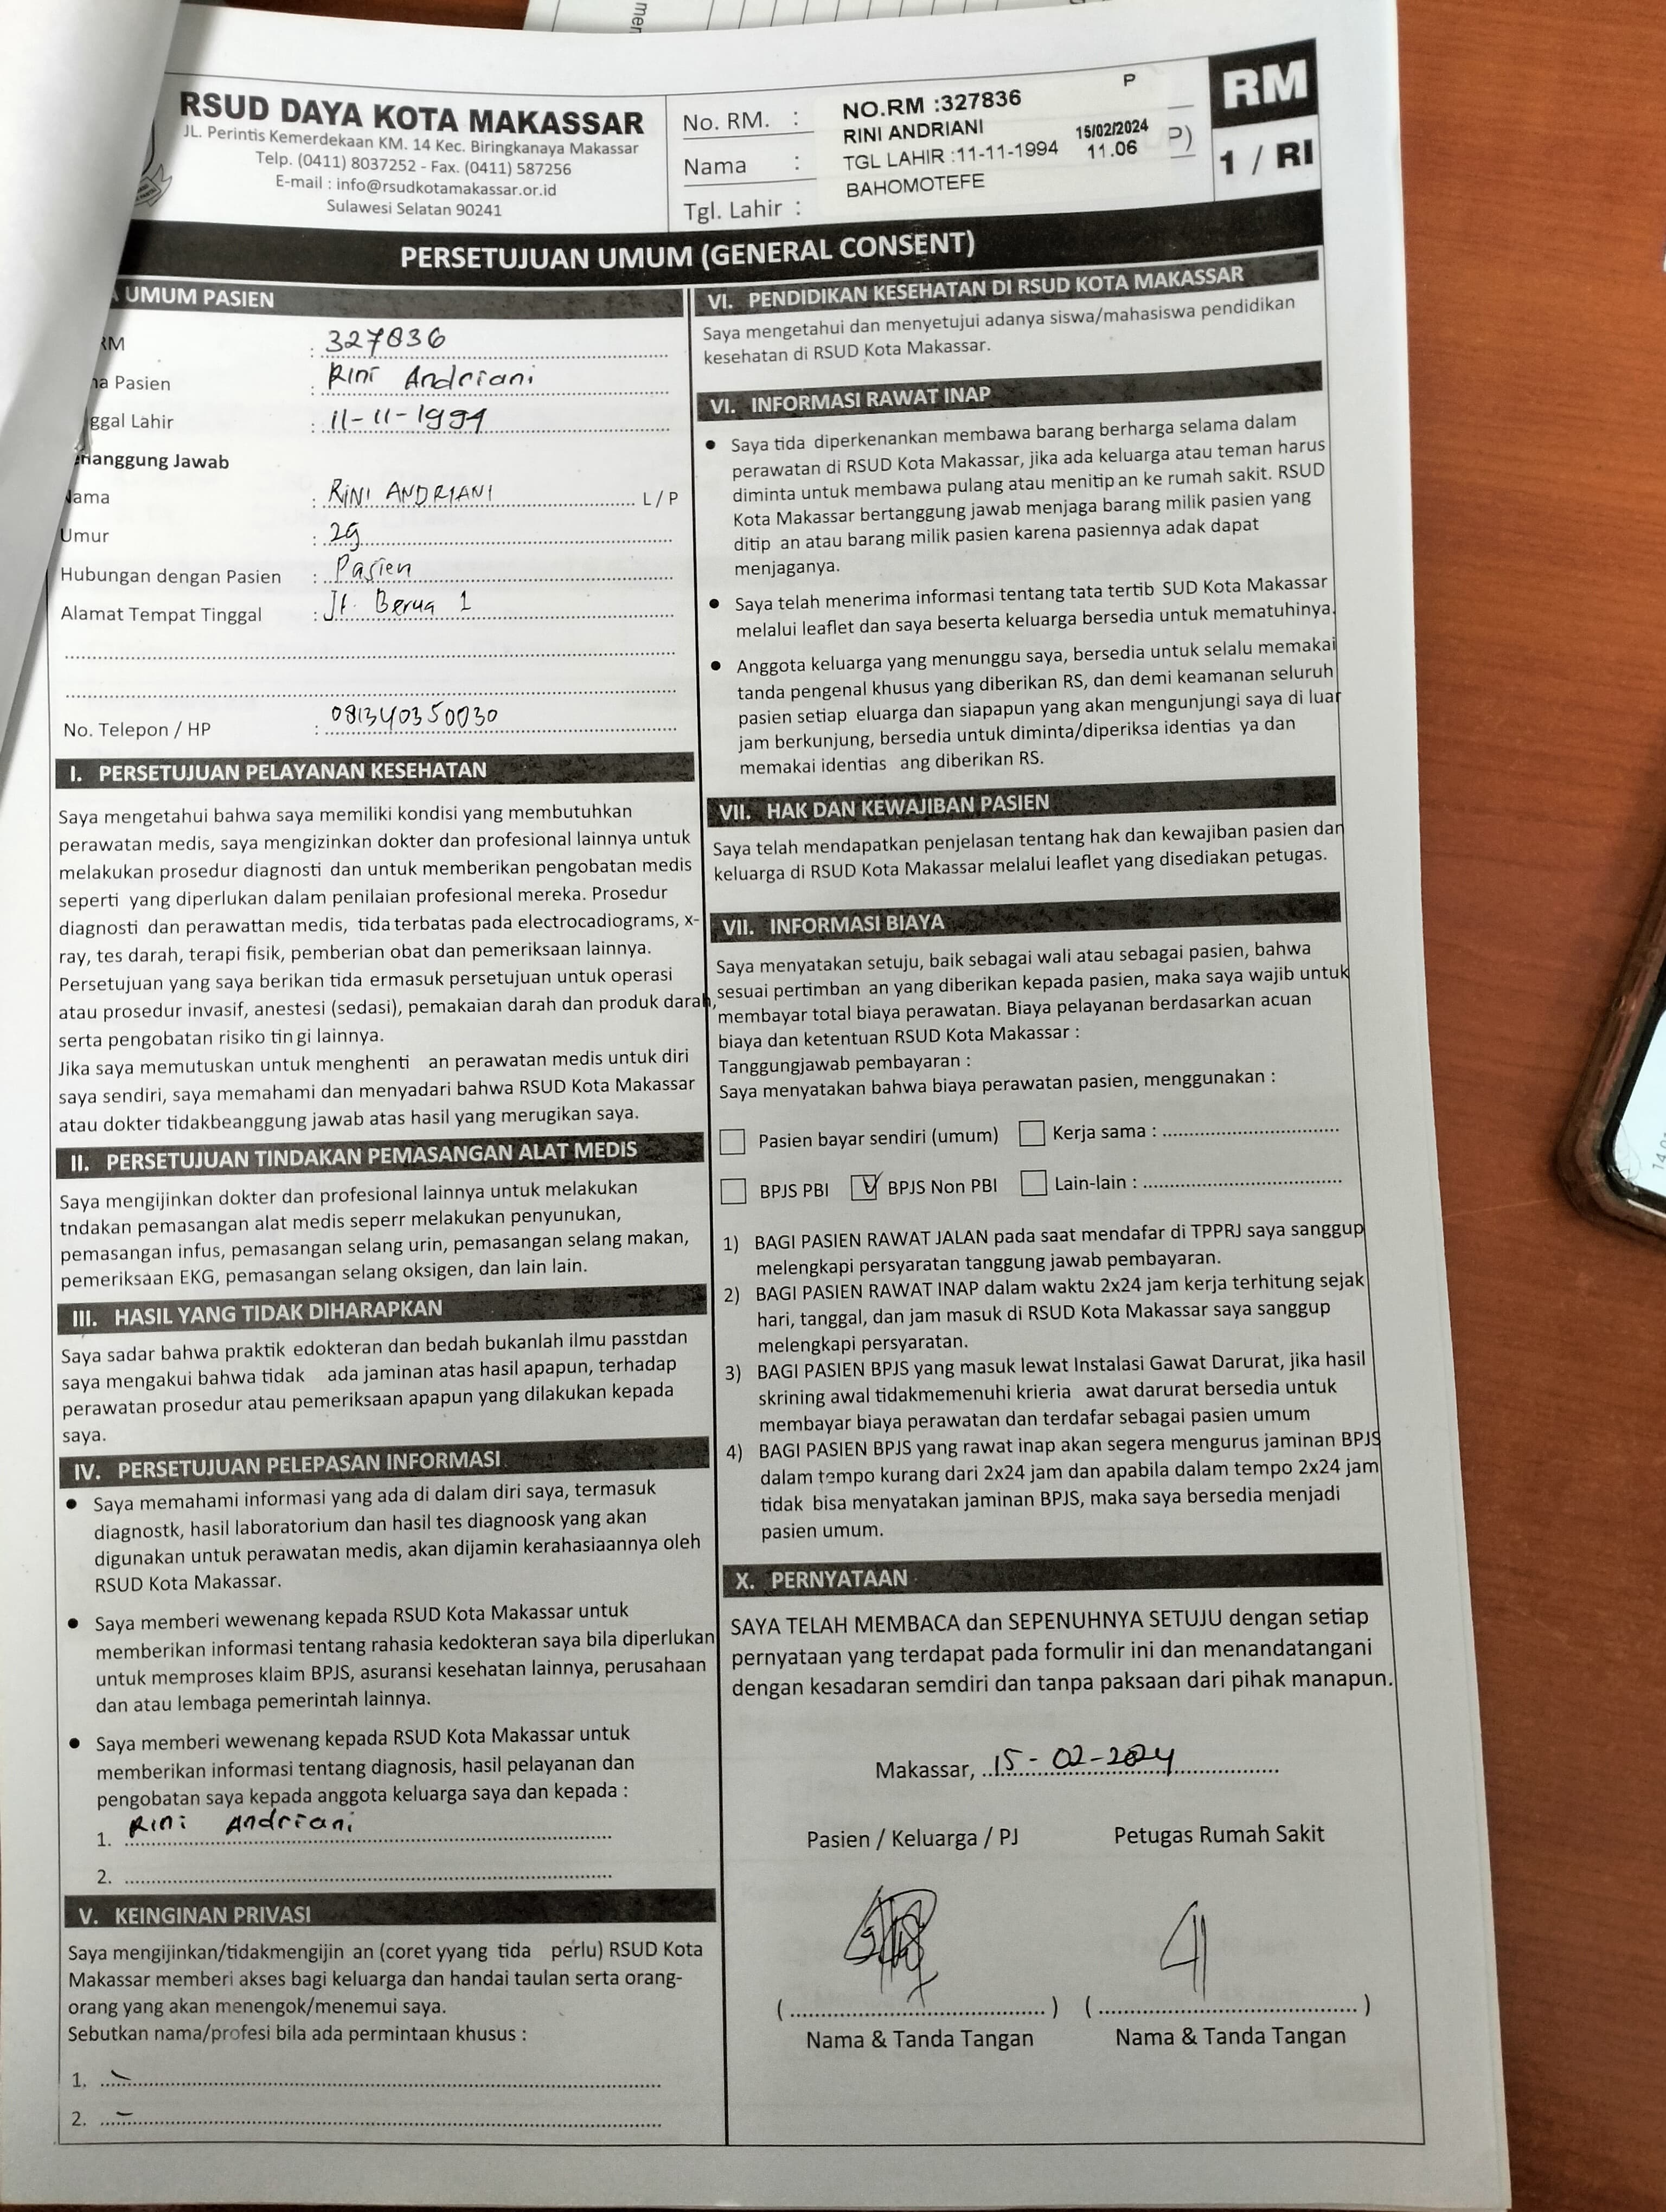 mer
RSUD DAYA KOTA MAKASSAR
JL. Perintis Kemerdekaan KM. 14 Kec. Biringkanaya Makassar
Telp. (0411) 8037252 - Fax. (0411) 587256
E-mail : info@rsudkotamakassar.or.id
Sulawesi Selatan 90241
No. RM. :
Nama :
Tgl. Lahir :
NO.RM :327836 P
RINI ANDRIANI 15/02/2024
TGL LAHIR :11-11-1994 11.06
BAHOMOTEFE
P)
RM
1 / RI
PERSETUJUAN UMUM (GENERAL CONSENT)
UMUM PASIEN
RM : 327836
na Pasien : Rini Andriani
ggal Lahir : 11-11-1994
nanggung Jawab
Nama : RINI ANDRIANI L / P
Umur : 29
Hubungan dengan Pasien : Pasien
Alamat Tempat Tinggal : Jl. Berua 1
No. Telepon / HP : 081340350030
I. PERSETUJUAN PELAYANAN KESEHATAN
Saya mengetahui bahwa saya memiliki kondisi yang membutuhkan
perawatan medis, saya mengizinkan dokter dan profesional lainnya untuk
melakukan prosedur diagnosti dan untuk memberikan pengobatan medis
seperti yang diperlukan dalam penilaian profesional mereka. Prosedur
diagnosti dan perawattan medis, tida terbatas pada electrocadiograms, x-
ray, tes darah, terapi fisik, pemberian obat dan pemeriksaan lainnya.
Persetujuan yang saya berikan tida ermasuk persetujuan untuk operasi
atau prosedur invasif, anestesi (sedasi), pemakaian darah dan produk darah,
serta pengobatan risiko tin gi lainnya.
Jika saya memutuskan untuk menghenti an perawatan medis untuk diri
saya sendiri, saya memahami dan menyadari bahwa RSUD Kota Makassar
atau dokter tidakbeanggung jawab atas hasil yang merugikan saya.
II. PERSETUJUAN TINDAKAN PEMASANGAN ALAT MEDIS
Saya mengijinkan dokter dan profesional lainnya untuk melakukan
tndakan pemasangan alat medis seperr melakukan penyunukan,
pemasangan infus, pemasangan selang urin, pemasangan selang makan,
pemeriksaan EKG, pemasangan selang oksigen, dan lain lain.
III. HASIL YANG TIDAK DIHARAPKAN
Saya sadar bahwa praktik edokteran dan bedah bukanlah ilmu passtdan
saya mengakui bahwa tidak ada jaminan atas hasil apapun, terhadap
perawatan prosedur atau pemeriksaan apapun yang dilakukan kepada
saya.
IV. PERSETUJUAN PELEPASAN INFORMASI
• Saya memahami informasi yang ada di dalam diri saya, termasuk
diagnostk, hasil laboratorium dan hasil tes diagnoosk yang akan
digunakan untuk perawatan medis, akan dijamin kerahasiaannya oleh
RSUD Kota Makassar.
• Saya memberi wewenang kepada RSUD Kota Makassar untuk
memberikan informasi tentang rahasia kedokteran saya bila diperlukan
untuk memproses klaim BPJS, asuransi kesehatan lainnya, perusahaan
dan atau lembaga pemerintah lainnya.
• Saya memberi wewenang kepada RSUD Kota Makassar untuk
memberikan informasi tentang diagnosis, hasil pelayanan dan
pengobatan saya kepada anggota keluarga saya dan kepada :
1. Rini Andriani
2.
V. KEINGINAN PRIVASI
Saya mengijinkan/tidakmengijin an (coret yyang tida perlu) RSUD Kota
Makassar memberi akses bagi keluarga dan handai taulan serta orang-
orang yang akan menengok/menemui saya.
Sebutkan nama/profesi bila ada permintaan khusus :
1. -
2. -
VI. PENDIDIKAN KESEHATAN DI RSUD KOTA MAKASSAR
Saya mengetahui dan menyetujui adanya siswa/mahasiswa pendidikan
kesehatan di RSUD Kota Makassar.
VI. INFORMASI RAWAT INAP
• Saya tida diperkenankan membawa barang berharga selama dalam
perawatan di RSUD Kota Makassar, jika ada keluarga atau teman harus
diminta untuk membawa pulang atau menitip an ke rumah sakit. RSUD
Kota Makassar bertanggung jawab menjaga barang milik pasien yang
ditip an atau barang milik pasien karena pasiennya adak dapat
menjaganya.
• Saya telah menerima informasi tentang tata tertib SUD Kota Makassar
melalui leaflet dan saya beserta keluarga bersedia untuk mematuhinya.
• Anggota keluarga yang menunggu saya, bersedia untuk selalu memakai
tanda pengenal khusus yang diberikan RS, dan demi keamanan seluruh
pasien setiap eluarga dan siapapun yang akan mengunjungi saya di luar
jam berkunjung, bersedia untuk diminta/diperiksa identias ya dan
memakai identias ang diberikan RS.
VII. HAK DAN KEWAJIBAN PASIEN
Saya telah mendapatkan penjelasan tentang hak dan kewajiban pasien dan
keluarga di RSUD Kota Makassar melalui leaflet yang disediakan petugas.
VII. INFORMASI BIAYA
Saya menyatakan setuju, baik sebagai wali atau sebagai pasien, bahwa
sesuai pertimban an yang diberikan kepada pasien, maka saya wajib untuk
membayar total biaya perawatan. Biaya pelayanan berdasarkan acuan
biaya dan ketentuan RSUD Kota Makassar :
Tanggungjawab pembayaran :
Saya menyatakan bahwa biaya perawatan pasien, menggunakan :
Pasien bayar sendiri (umum) Kerja sama :
BPJS PBI BPJS Non PBI Lain-lain :
1) BAGI PASIEN RAWAT JALAN pada saat mendafar di TPPRJ saya sanggup
melengkapi persyaratan tanggung jawab pembayaran.
2) BAGI PASIEN RAWAT INAP dalam waktu 2x24 jam kerja terhitung sejak
hari, tanggal, dan jam masuk di RSUD Kota Makassar saya sanggup
melengkapi persyaratan.
3) BAGI PASIEN BPJS yang masuk lewat Instalasi Gawat Darurat, jika hasil
skrining awal tidakmemenuhi krieria awat darurat bersedia untuk
membayar biaya perawatan dan terdafar sebagai pasien umum
4) BAGI PASIEN BPJS yang rawat inap akan segera mengurus jaminan BPJS
dalam tempo kurang dari 2x24 jam dan apabila dalam tempo 2x24 jam
tidak bisa menyatakan jaminan BPJS, maka saya bersedia menjadi
pasien umum.
X. PERNYATAAN
SAYA TELAH MEMBACA dan SEPENUHNYA SETUJU dengan setiap
pernyataan yang terdapat pada formulir ini dan menandatangani
dengan kesadaran semdiri dan tanpa paksaan dari pihak manapun.
Makassar, 15-02-2024
Pasien / Keluarga / PJ Petugas Rumah Sakit
Nama & Tanda Tangan Nama & Tanda Tangan